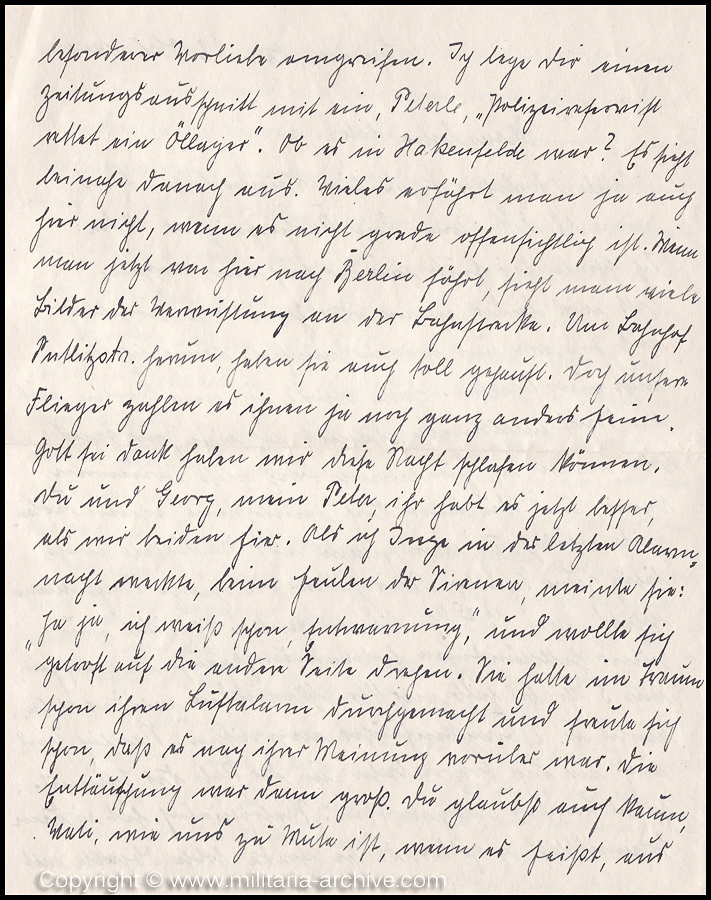 besonderer Vorliebe angreifen. Ich lege Dir einen
Zeitungsausschnitt mit ein, Peterle, „Polizeireservist
rettet ein Öllager“. Ob es in Hakenfelde war? Es sieht
beinahe danach aus. Vieles erfährt man ja auch
hier nicht, wenn es nicht grade offensichtlich ist. Wenn
man jetzt von hier nach Berlin fährt, sieht man viele
Bilder der Verwüstung an der Bahnstrecke. Um Bahnhof
Putlitzstr. herum, haben sie auch toll gehaust. Doch unsere
Flieger zahlen es ihnen ja noch ganz anders heim.
Gott sei dank haben wir diese Nacht schlafen können.
Du und Georg, mein Peter, ihr habt es jetzt besser,
als wir beiden hier. Als ich Inge in der letzten Alarm-
nacht weckte, beim heulen der Sirenen, meinte sie:
„Ja ja, ich weiß schon, Entwarnung,“ und wollte sich
getrost auf die andere Seite drehen. Sie hatte im Traum
schon ihren Luftalarm durchgemacht und freute sich
schon, daß es nach ihrer Meinung vorüber war. Die
Enttäuschung war dann groß. Du glaubst auch kaum,
Vati, wie uns zu Mute ist, wenn es heißt, aus
Copyright © www.militaria-archive.com